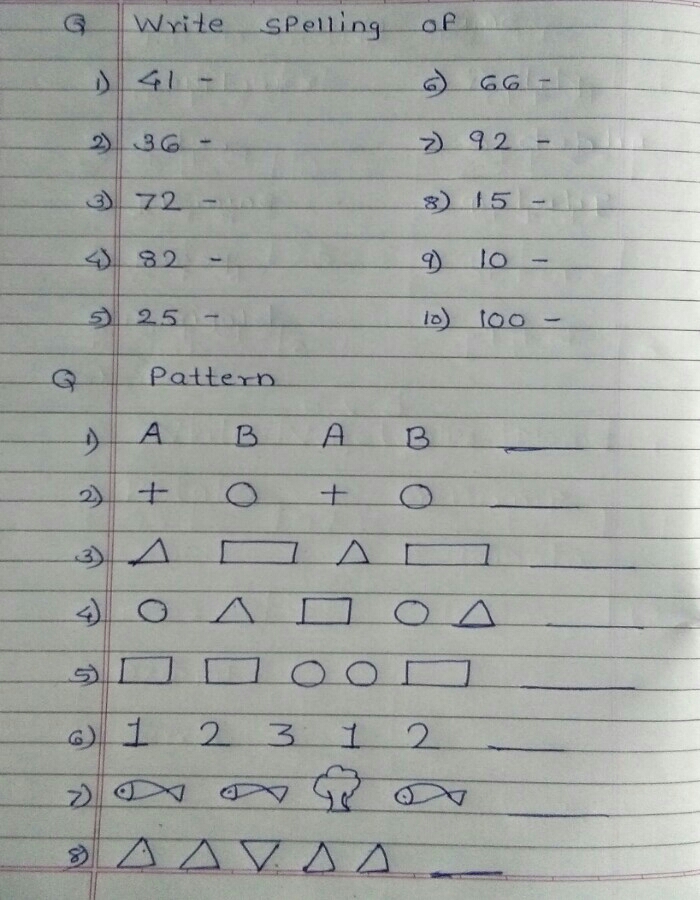 Q Write spelling of
1) 41 - 6) 66 -
2) 36 - 7) 92 -
3) 72 - 8) 15 -
4) 82 - 9) 10 -
5) 25 - 10) 100 -
Q Pattern
1) A B A B ____
2) + ○ + ○ ____
3) △ ▭ △ ▭ ____
4) ○ △ □ ○ △ ____
5) □ □ ○ ○ □ ____
6) 1 2 3 1 2 ____
7) ____
8) △ △ ▽ △ △ ____